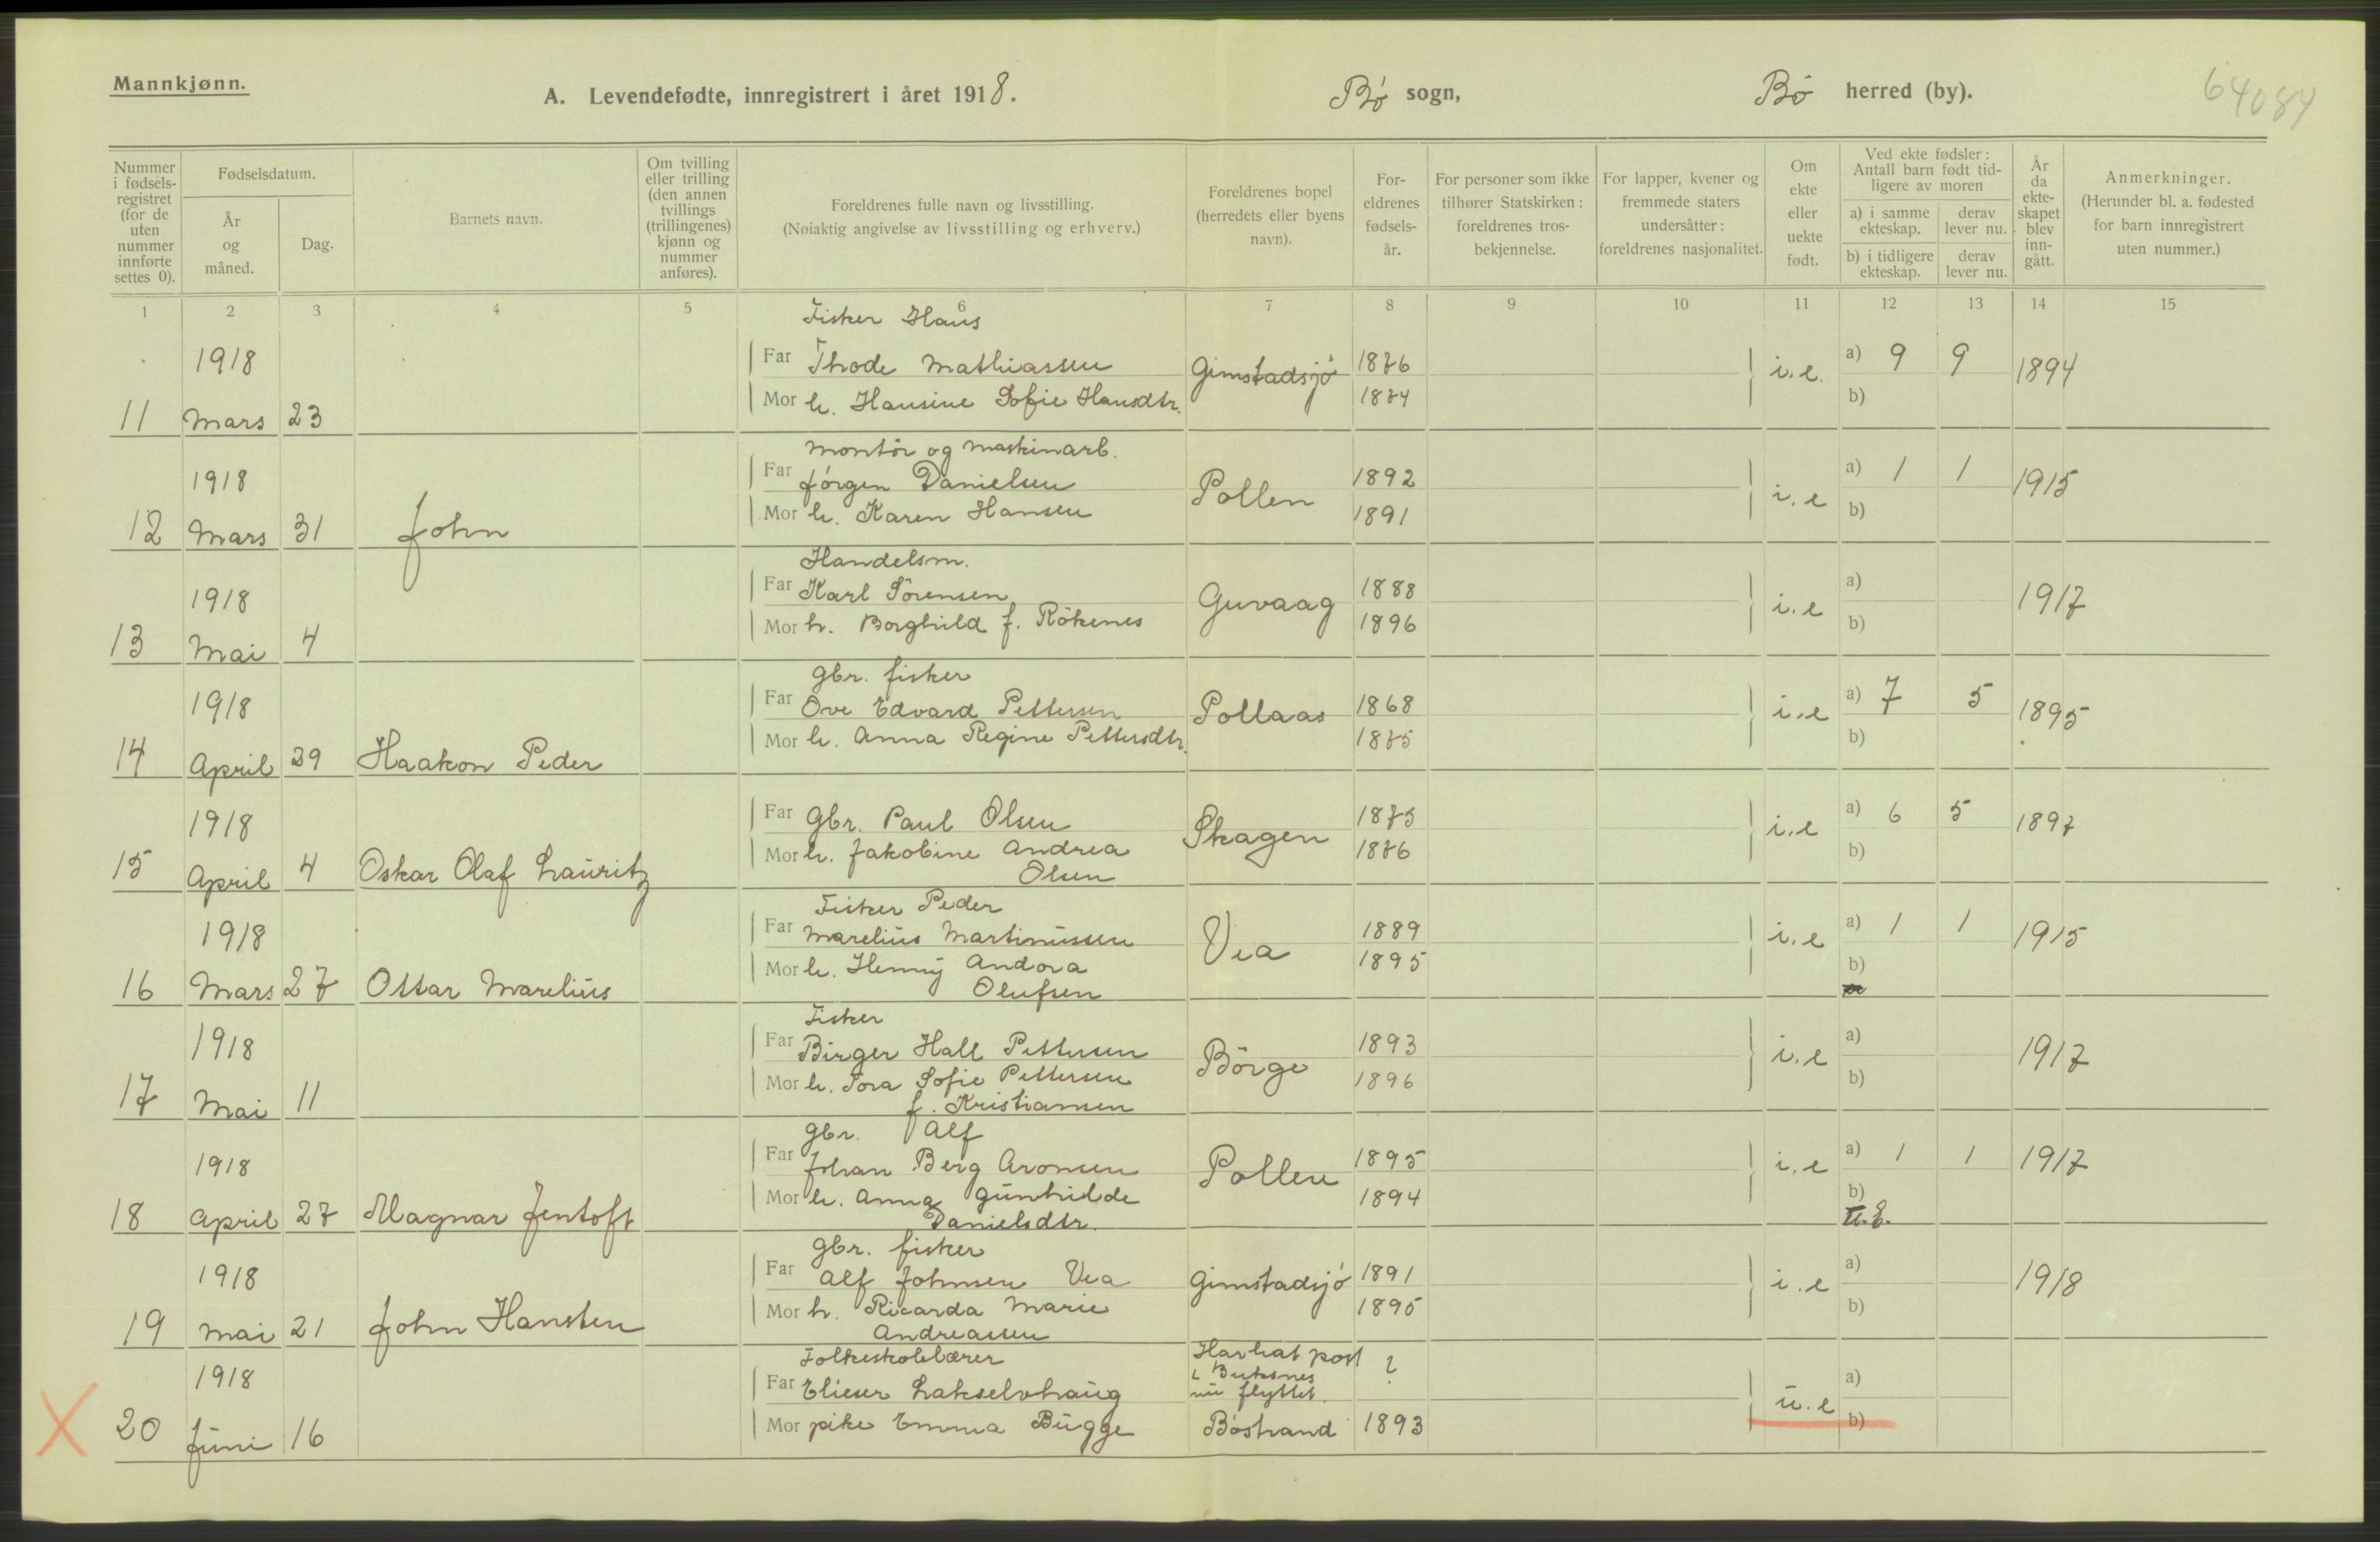 Mannkjønn.
A. Levendefødte, innregistrert i året 1918.
Bø sogn,
Bø herred (by).
64084
Nummer i fødsels-registret (for de uten nummer innførte settes 0).
Fødselsdatum.
År og måned.
Dag.
Barnets navn.
Om tvilling eller trilling (den annen tvillings (trillingenes) kjønn og nummer anføres).
Foreldrenes fulle navn og livsstilling.
(Nøiaktig angivelse av livsstilling og erhverv.)
Foreldrenes bopel (herredets eller byens navn).
For-eldrenes fødsels-år.
For personer som ikke tilhører Statskirken: foreldrenes tros-bekjennelse.
For lapper, kvener og fremmede staters undersåtter: foreldrenes nasjonalitet.
Om ekte eller uekte født.
Ved ekte fødsler: Antall barn født tid-ligere av moren
a) i samme ekteskap.
derav lever nu.
b) i tidligere ekteskap.
derav lever nu.
År da ekte-skapet blev inn-gått.
Anmerkninger.
(Herunder bl. a. fødested for barn innregistrert uten nummer.)
1 2 3 4 5 6 7 8 9 10 11 12 13 14 15
Fisker Hans
1918 Far Thode Mathiassen Gimstadsjø 1876 i.e. a) 9 9 1894
Mor h. Hansine Sofie Hansdtr. 1874 b)
11 Mars 23
Montör og maskinarb.
1918 Far Jörgen Danielsen Pollen 1892 i.e a) 1 1 1915
Mor h. Karen Hansen 1891 b)
12 Mars 31 John
Handelsm.
1918 Far Karl Sörensen Guvaag 1888 i.e a) 1917
Mor h. Borghild f. Rökenes 1896 b)
13 Mai 4
Gbr. fisker
1918 Far Ove Edvard Pettersen Pollaas 1868 i.e a) 7 5 1895
Mor h. Anna Regine Pettersdtr. 1875 b)
14 April 29 Haakon Peder
1918 Far Gbr. Paul Olsen Skagen 1875 i.e a) 6 5 1897
Mor h. Jakobine Andrea 1876 b)
15 April 4 Oskar Olaf Lauritz Olsen
Fisker Peder
1918 Far Marelius Martinussen Vea 1889 i.e a) 1 1 1915
Mor h. Henny Andora 1895 b)
16 Mars 27 Ottar Marelius Olufsen
Fisker
1918 Far Birger Hall Pettersen Börge 1893 i.e a) 1917
Mor h. Tora Sofie Pettersen 1896 b)
17 Mai 11 f. Kristiansen
Gbr. Alf
1918 Far Johan Berg Aronsen Pollen 1895 i.e a) 1 1 1917
Mor h. Anna Gunhilde 1894 b)
18 April 27 Magnar Jentoft Danielsdtr. U.E.
Gbr. fisker
1918 Far Alf Johnsen Vea Gimstadsjø 1891 i.e a) 1918
Mor h. Ricarda Marie 1895 b)
19 Mai 21 John Hansten Andreassen
Folkeskolelærer Har hat post
1918 Far Elieser Lakselvhaug i Buksnes nu flyttet. ? u.e a)
Mor pike Emma Bugge Böstrand 1893 b)
X 20 Juni 16